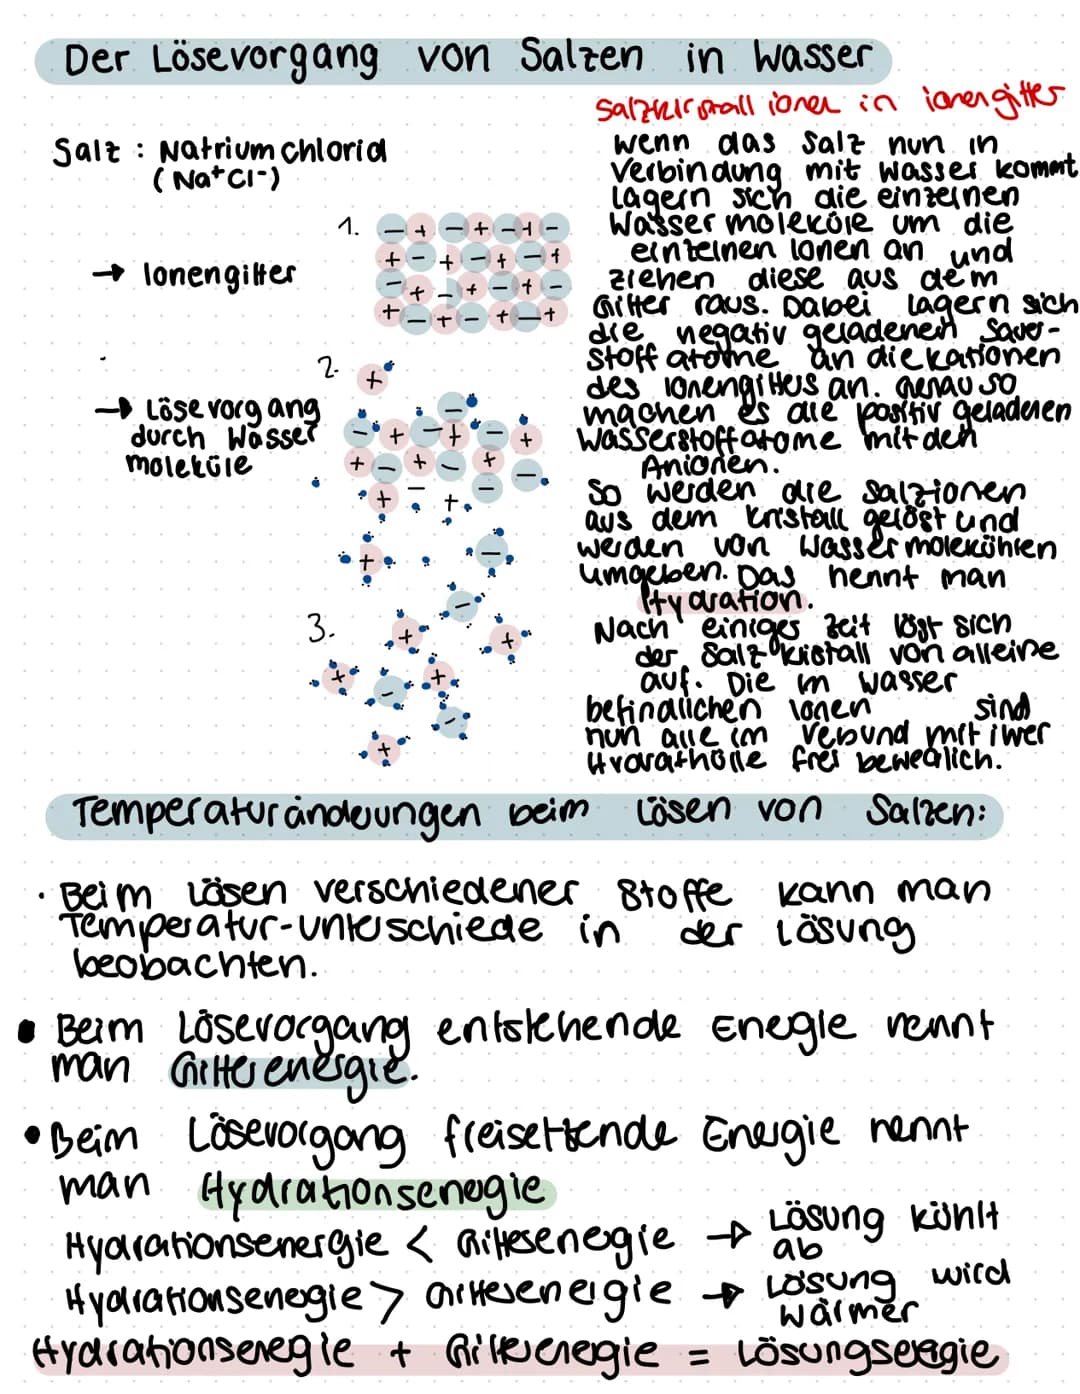 Der Lösevorgang von Salzen in Wasser
Salzkristall ionen in ionengitter
Salz : Natriumchlorid
(Na⁺Cl⁻)
→ Ionengitter
→ Lösevorgang
durch Wasser
moleküle
1.
2.
3.
wenn das Salz nun in
Verbindung mit Wasser kommt
lagern sich die einzelnen
Wassermoleküle um die
einzelnen Ionen an und
ziehen diese aus dem
Gitter raus. Dabei lagern sich
die negativ geladenen Sauer-
stoffatome an die Kationen
des Ionengitters an. Genau so
machen es die positiv geladenen
Wasserstoffatome mit den
Anionen.
So werden die Salzionen
aus dem Kristall gelöst und
werden von Wassermolekühlen
umgeben. Das nennt man
Hydration.
Nach einiger Zeit löst sich
der Salzkristall von alleine
auf. Die im Wasser
befindlichen Ionen sind
nun alle im Verbund mit ihrer
Hydrathülle frei beweglich.
Temperaturänderungen beim Lösen von Salzen:
· Beim Lösen verschiedener Stoffe kann man
Temperatur-unterschiede in der Lösung
beobachten.
• Beim Lösevorgang entstehende Energie nennt
man Gitterenergie.
• Beim Lösevorgang freisetzende Energie nennt
man Hydrationsenergie
Hydrationsenergie < Gitterenergie → Lösung kühlt
ab
Hydrationsenergie > Gitterenergie → Lösung wird
wärmer
Hydrationsenergie + Gitterenergie = Lösungsenergie